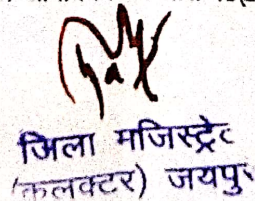 जिला मजिस्ट्रेट
(कलक्टर) जयपुर